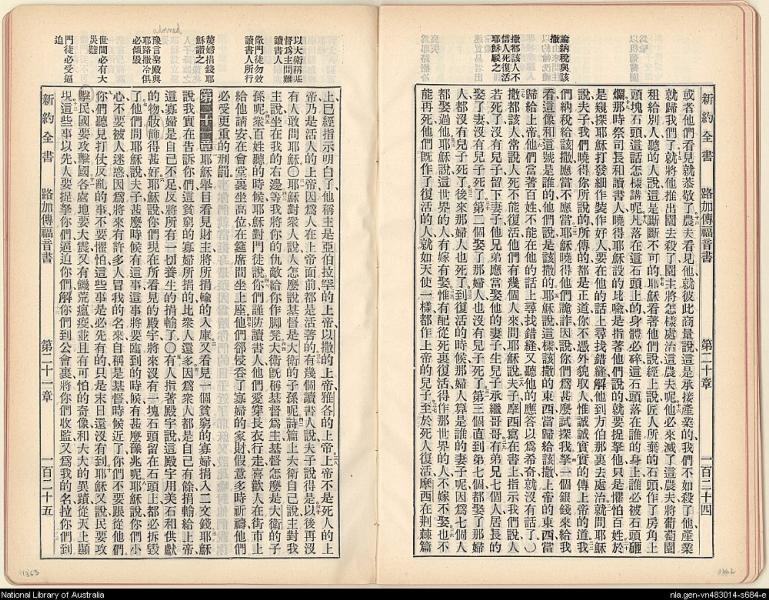 論納稅與該
撒
撒都該人不
信人死復活
耶穌駁之
新約全書 路加傳福音書 第二十章 一百二十四
或者他們看見就恭敬了農夫看見他就彼此商量說這是承接產業的我們不如殺了他產業
就歸我們了就將他推出園去殺了園主將怎樣處治這農夫呢他必來滅了這農夫將葡萄園
租給別人聽的人說這是斷斷不可的耶穌看著他們說經上說匠人所棄的石頭作了房角上
頭塊石頭這話怎樣講呢凡落在這石頭上的身體必碎這石頭落在誰的身上誰必被石頭砸
爛那時祭司長和讀書人曉得耶穌設的比喻是指著他們說的就要捉拏他只是懼怕百姓於
是窺探耶穌打發細作裝作好人要在他的話上尋找錯縫解他到方伯那裏去處治就問耶穌
說夫子我們曉得你所說的所傳的都是正道你不憑外貌取人惟誠誠實實的傳上帝的道我
們納稅給該撒應當不應當耶穌曉得他們詭詐因說你們爲甚麼試探我拏一個銀錢來給我
看這像和這號是誰的他們說是該撒的耶穌說這樣該撒的東西當歸給該撒上帝的東西當
歸給上帝他們當著百姓不能在他的話上尋找錯縫又聽他的應答以爲希奇就沒有話了○
撒都該人常說人死不能復活他們有幾個人來問耶穌說夫子摩西寫在書上指示我們說人
若死了沒有兒子留下妻子他兄弟應當娶他的妻子生兒子承繼哥哥有弟兄七個人居長的
娶了妻沒有兒子死了第二個娶了那婦人也沒有兒子死了第三個直到第七個都娶了那婦
人都沒有兒子死了後來那婦人也死了到復活的時候那婦人算是誰的妻子呢因爲七個人
都娶過他耶穌說這世界的人有嫁有娶惟有配從死裏復活得作那世界的人不嫁不娶也不
能再死他們旣作了復活的人就如天使一樣都作上帝的兒子至於死人復活摩西在荆棘篇
以大衞稱基
督爲主問難
讀書人
儆門徒勿效
讀書人所行
嫠婦捐錢耶
穌讚之
豫言聖殿與
耶路撒冷俱
必傾毀
世間必有大
災難
門徒必受逼
迫
上已經指示明白了他稱主是亞伯拉罕的上帝以撒的上帝雅各的上帝上帝不是死人的上
帝乃是活人的上帝因爲人在上帝面前都是活著的有幾個讀書人說夫子說得是以後再沒
有人敢問耶穌○耶穌對衆人說人怎麼說基督是大衞的子孫呢詩篇上大衞自己說主對我
主說坐在我的右邊等我將你的仇敵給你作脚凳大衞旣稱基督爲主基督怎麼是大衞的子
孫呢衆百姓聽的時候耶穌對門徒說你們謹防讀書人他們愛穿長衣行走喜歡人在街市上
給他請安在會堂裏坐高位在筵席間坐上座他們都侵吞了寡婦的家財假意多時祈禱他們
必受更重的刑罰
第二十一章 耶穌舉目看見財主將所捐輸的入庫又看見一個貧窮的寡婦捐入二文錢耶穌
說我實在告訴你們這貧窮的寡婦所捐的比衆人還多因爲衆人都是自己有餘捐輸給上帝
這寡婦是自己不足反將所有一切養生的捐輸了○有人指著殿宇說這殿宇用美石和供獻
的物妝飾得甚好耶穌說你們現在所看見的殿宇將來沒有一塊石頭留在石頭上都必拆毀
了他們問耶穌說夫子甚麼時候有這事這事將要臨到的時候有甚麼豫兆呢耶穌說你們小
心不要被人迷惑因爲將來有許多人冒我的名來自稱是基督時候近了你們不要跟從他們
你們聽見打仗反亂的事不要懼怕這些事是必先有的只是末日還沒有到耶穌又說民要攻
擊民國要攻擊國各處地要大震又有饑荒瘟疫並且有可怕的奇像和大大的異蹟從天上顯
現這些事以先人要捉拏你們逼迫你們解你們到公會裏將你們收監又爲我的名拉你們到
新約全書 路加傳福音書 第二十一章 一百二十五
National Library of Australia
nla.gen-vn483014-s684-e